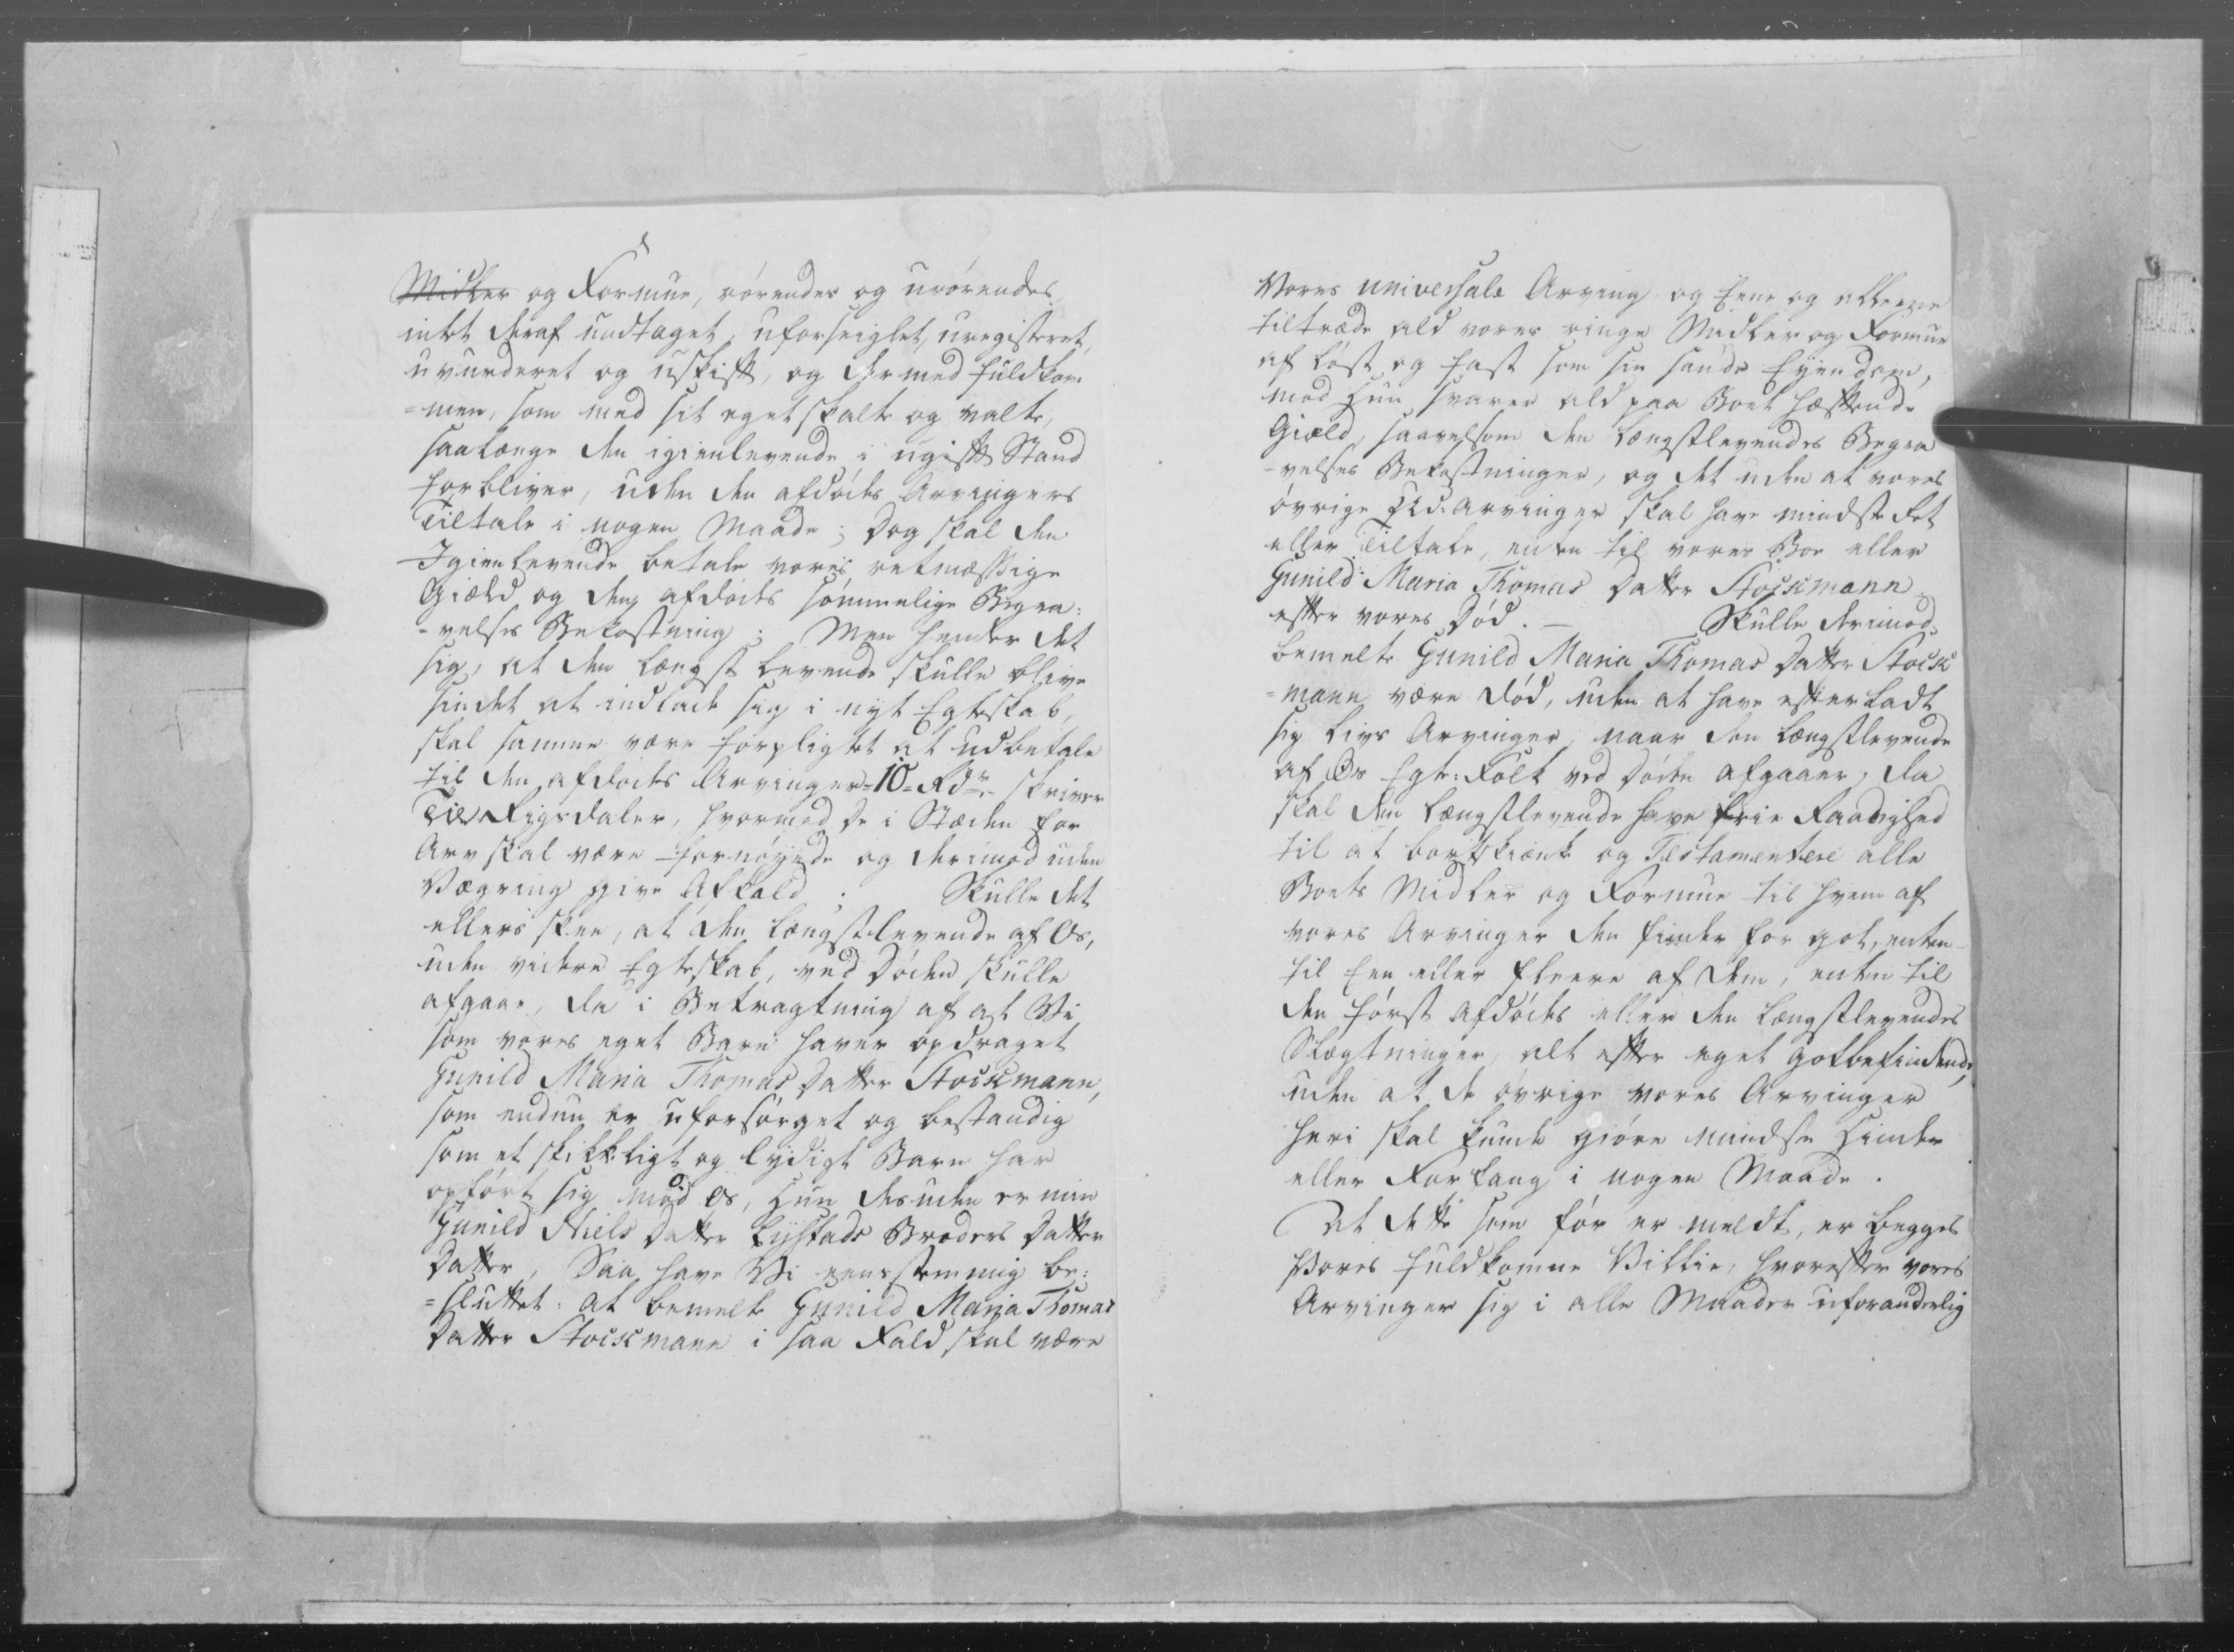 Midler og Formue, rørendes og urørendes
intet deraf undtaget, uforseiglet, uregisteret,
uvurderet og uskift, og dermed fuldkom-
=men, som med sit eget skalte og valte,
saalænge den igienlevende i ugift Stand
forbliver, uden den afdødes Arvingers
Tiltale i nogen Maade; Dog skal den
Igienlevende betale vores retmæssige
Giæld og den afdødes sømmelige Begra:
-velses Bekostning; Men hender det
sig, at den længst levende skulle blive
sindet at indlade sig i nyt Egteskab,
skal samme være forpligtet at udbetale
til den afdødes Arvinger =10= Rdr. skriver
Tie Rigsdaler, hvormed de i Stæden for
Arv skal være fornøyede og derimod uden
Vægring give Afkald; Skulle det
ellers skee, at den længstlevende af Os,
uden videre Egteskab, ved Døden skulle
afgaae, da i Betragtning af at Vi
som vores eget Barn haver opdraget
Gunild Maria Thomas Datter Stockmann,
som endnu er uforsørget og bestandig
som et skikkeligt og lydigt Barn har
opført sig mod Os, hun desuden er min
Gunild Niels Datter Lystads Broders Datter
Datter, Saa have Vi eenstemmig be:
=sluttet: at bemelte Gunild Maria Thomas
Datter Stockmann i saa Fald skal være
Vores universale Arving og Eene og alleene
tiltræde ald vores ringe Midler og Formue
af løst og fast som sin sande Eyendom,
mod hun svarer ald paa Boet hæftende
Giæld, saavelsom den længstlevendes Begra
-velses Bekostninger, og det uden at vores
øvrige Ud: Arvinger skal have mindste Ret
eller Tiltale, enten til vores Boe eller
Gunild Maria Thomas Datter Stockmann
efter vores Død. — Skulle derimod
bemelte Gunild Maria Thomas Datter Stock
=mann være død, uden at have efterladt
sig Livs Arvinger, naar den længstlevende
af Os Egte: Folk ved Døden afgaaer, da
skal den længstlevende have frie Raadighed
til at bortskiænke og Testamentere alle
Boets Midler og Formue til hvem af
vores Arvinger den finder for got, enten
til Een eller fleere af dem, enten til
den først Afdødes eller den længstlevendes
Slægtninger, alt efter eget Gotbefindende,
uden at de øvrige vores Arvinger
heri skal kunde giøre mindste Hinder
eller Forfang i nogen Maade.
At dette som før er meldt, er begges
Vores fuldkomne Villie, hvorefter vores
Arvinger sig i alle Maader uforanderlig